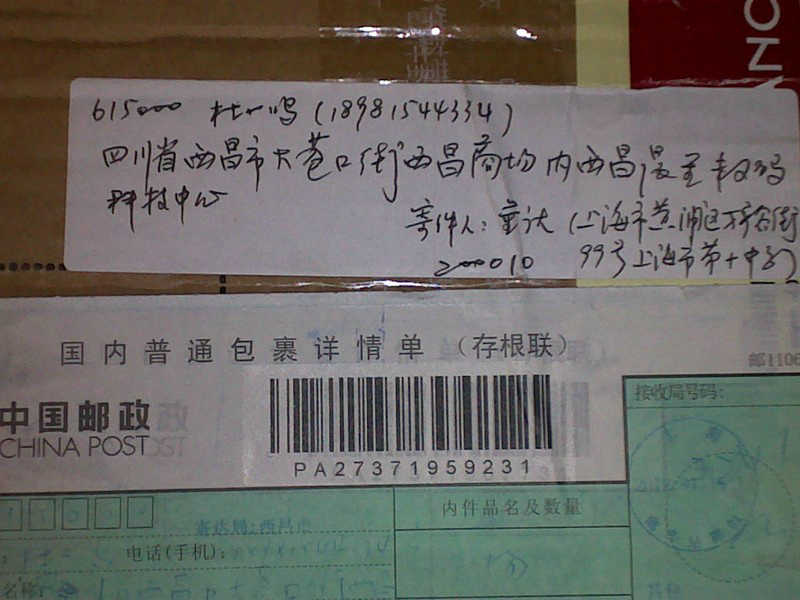 ANC
615000 杜一鸣(18981544334)
四川省西昌市大巷口街西昌商场内西昌晨星数码
科技中心
寄件人:童达(上海市黄浦区
200010 99号上海市第十中学)
国内普通包裹详情单(存根联)
邮1106
中国邮政
CHINA POST
PA27371959231
接收局号码:
内件品名及数量
寄达局:西昌市
电话(手机):
名称: